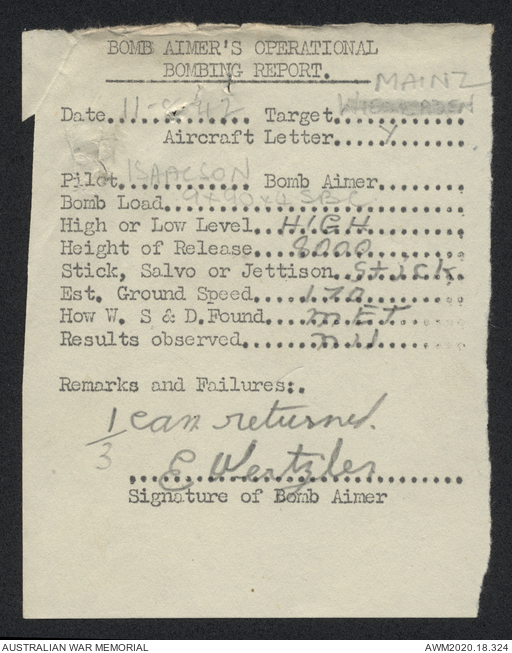 BOMB AIMER'S OPERATIONAL
BOMBING REPORT.
MAINZ
Date 11-8-42 Target WIESBADEN
Aircraft Letter Y
Pilot ISAACSON Bomb Aimer
Bomb Load 9x90x4 SBC
High or Low Level HIGH
Height of Release 8000
Stick, Salvo or Jettison Stick
Est. Ground Speed 170
How W. S & D. Found MET
Results observed nil
Remarks and Failures:.
1/3 can returned.
E Wertzler
Signature of Bomb Aimer
AUSTRALIAN WAR MEMORIAL AWM2020.18.324